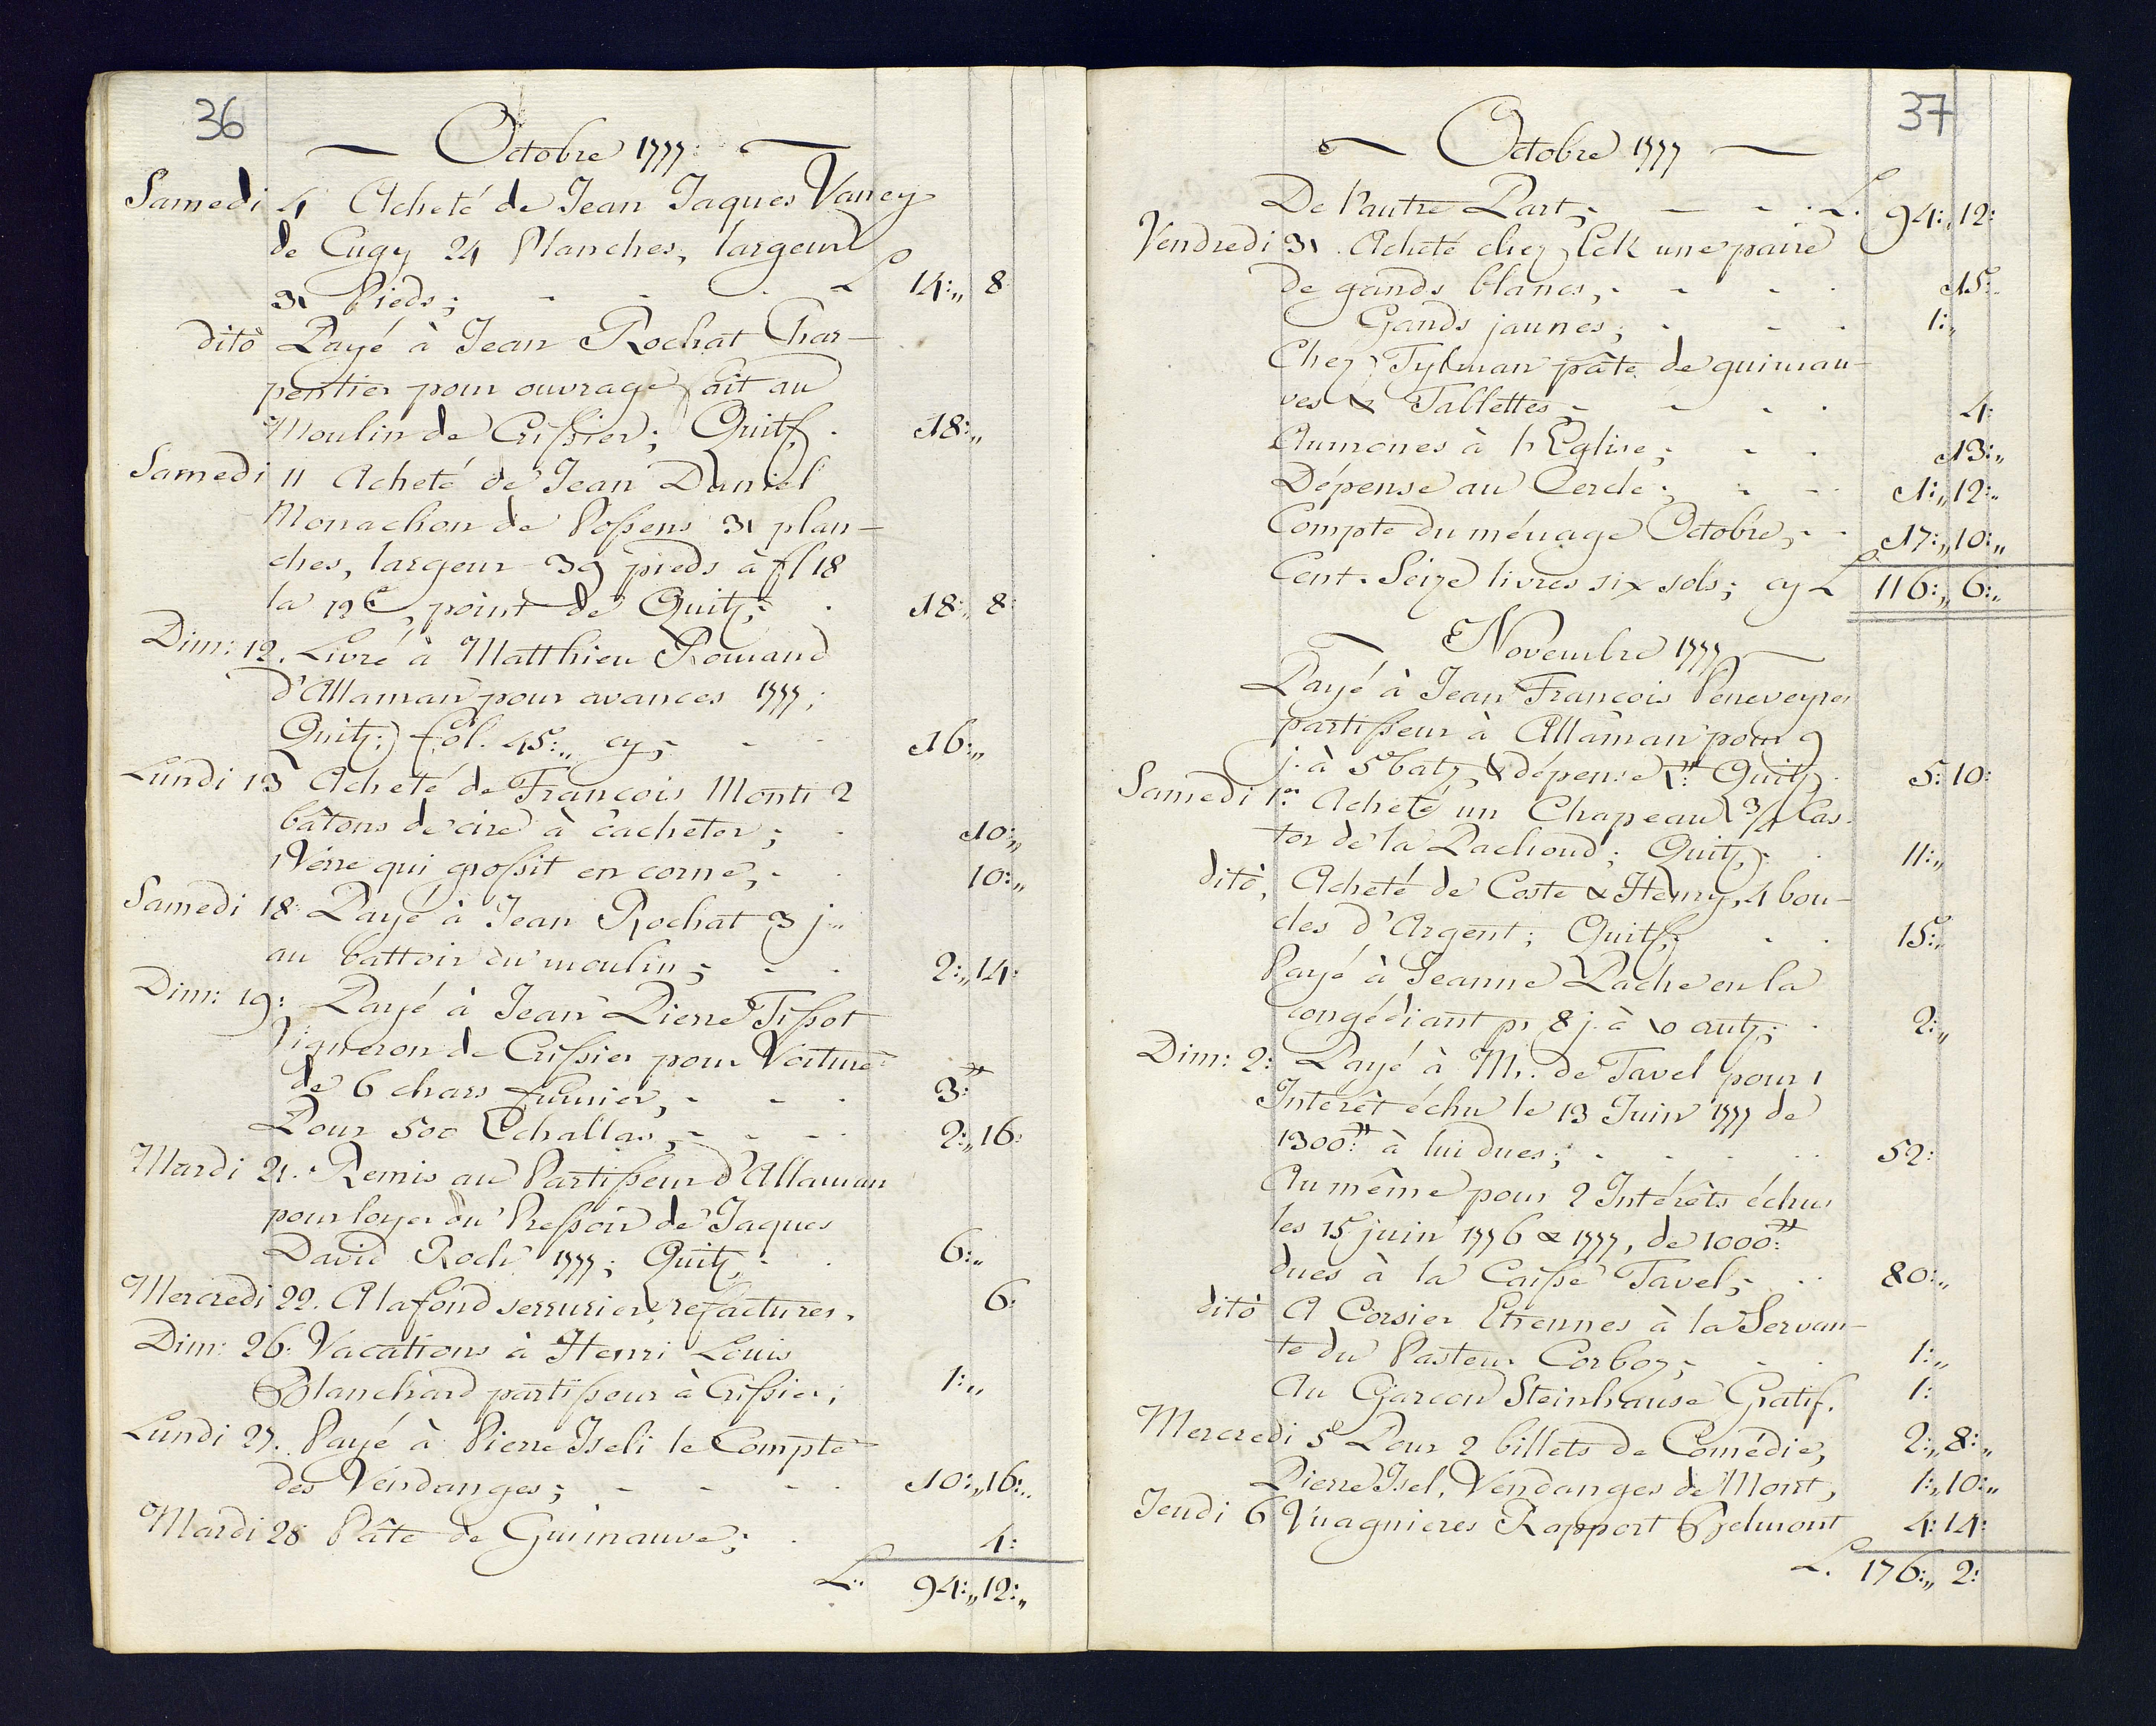 36
Octobre 1777:
Samedi 4 Acheté de Jean Jaques Vaney
de Cugy 24 Planches, largeur
31 Pieds; - - - L 14:,, 8:
dito Payé à Jean Rochat Char-
pentier pour ouvrage fait au
Moulin de Crissier; Quitt. 18:,,
Samedi 11 Acheté de Jean Daniel
Monachon de Possens 31 plan-
ches, largeur 39 pieds à fl 18
la 12e, point de Quitz; 18:,, 8:
Dim: 12. Livré à Matthieu Romand
d'Allaman pour avances 1777;
Quitz: fol. 45:,, cy; - - 16:,,
Lundi 13 Acheté de François Monti 2
bâtons de cire à cacheter; - 10:,,
1 Vérre qui grossit en corne, - 10:,,
Samedi 18: Payé à Jean Rochat 3 j.,,
au battoir du moulin; - - 2:,, 14:
Dim: 19: Payé à Jean Pierre Tissot
Vigneron de Crissier pour Voiture
de 6 chars fumier, - - - 3:
Pour 500 Echallas; - - - 2:,, 16:
Mardi 21. Remis au Partisseur d'Allaman
pour loyer du Pressoir de Jaques
David Roch 1777; Quitz, - 6:,,
Mercredi 22. A lafond serrurier, refactures. 6:
Dim: 26: Vacations à Henri Louis
Blanchard partisseur à Crissier; 1:,,
Lundi 27. Payé à Pierre Iseli le Compte
des Vendanges; - - - - 10:,, 16:,,
Mardi 28 Pâte de Guimauve; - 4:
L: 94:,, 12:,,
37
Octobre 1777
De l'autre Part; - - - L. 94:,, 12:
Vendredi 31. Acheté chez une paire
de gands blancs, - - - 15:
Gands jaunes; - - - 1:,,
Chez Tylman pâte de guimau-
ves & Tablettes; - - - 4:
Aumones à l'Eglise; - - 13:,,
Dépense au Cercle; - - 1:,, 12:,,
Compte du ménage Octobre, - - 17:,, 10:,,
Cent. Seize livres six sols; cy L 116:,, 6:,,
Novembre 1777
Payé à Jean François Peneveyres
partisseur à Allaman pour 9
j. à 5 batz, & dépense Quitz. 5: 10:
Samedi 1er Acheté un Chapeau 3/4 Cas-
tor de la Pachoud; Quitz, 11:,,
dito, Acheté de Coste & Henry, 4 bou-
cles d'Argent; Quitt; - - 15:,,
Payé à Jeanne Pache en la
congédiant pr 8 j. à 10 crutz; - 2:,,
Dim: 2: Payé à Mr. de Tavel pour 1
Intérêt échu le 13 Juin 1777 de
1300: à lui dues; - - - - 52:
Au même pour 2 Intérêts échus
les 15 juin 1776 & 1777, de 1000:
dues à la Caisse Tavel; - - 80:,,
dito A Corsier Etrennes à la Servan-
te du Pasteur Corboz; - - - 1:,,
Au Garcon Steinhause Gratif. 1:
Mercredi 5 Pour 2 billets de Comédie, 2:,, 8:,,
Pierre Isel, Vendanges de Mont, 1:,, 10:,,
Jeudi 6 Vuagnieres Rapport Belmont 4: 14:
L. 176:,, 2: